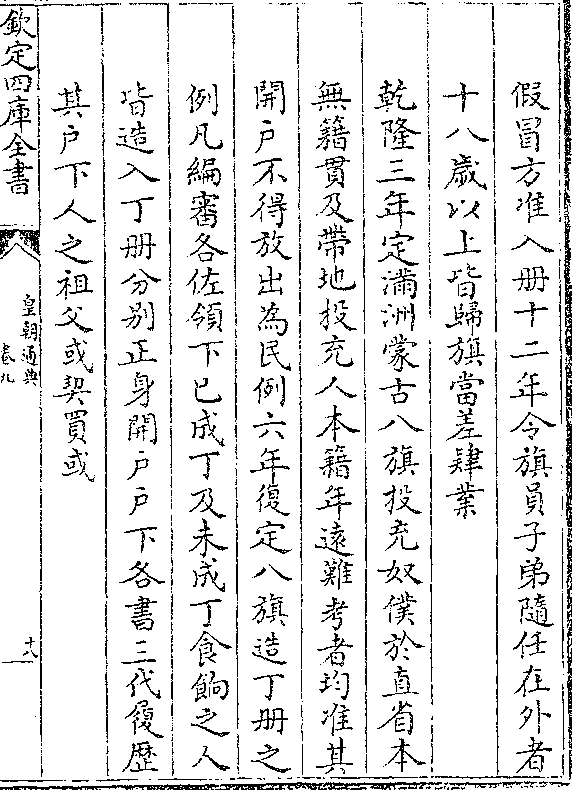 假冒方准入册十二年令旗員子弟隨任在外者
十八歲以上皆歸旗當差肄業
乾隆三年定滿洲蒙古八旗投充奴僕於直省本
無籍貫及帶地投充人本籍年遠難考者均准其
開户不得放出為民例六年復定八旗造丁册之
例凡編審各佐領下已成丁及未成丁食餉之人
皆造入丁册分别正身開户户下各書三代履歴
其户下人之祖父或契買或
欽定四庫全書
皇朝通典
卷九
十八